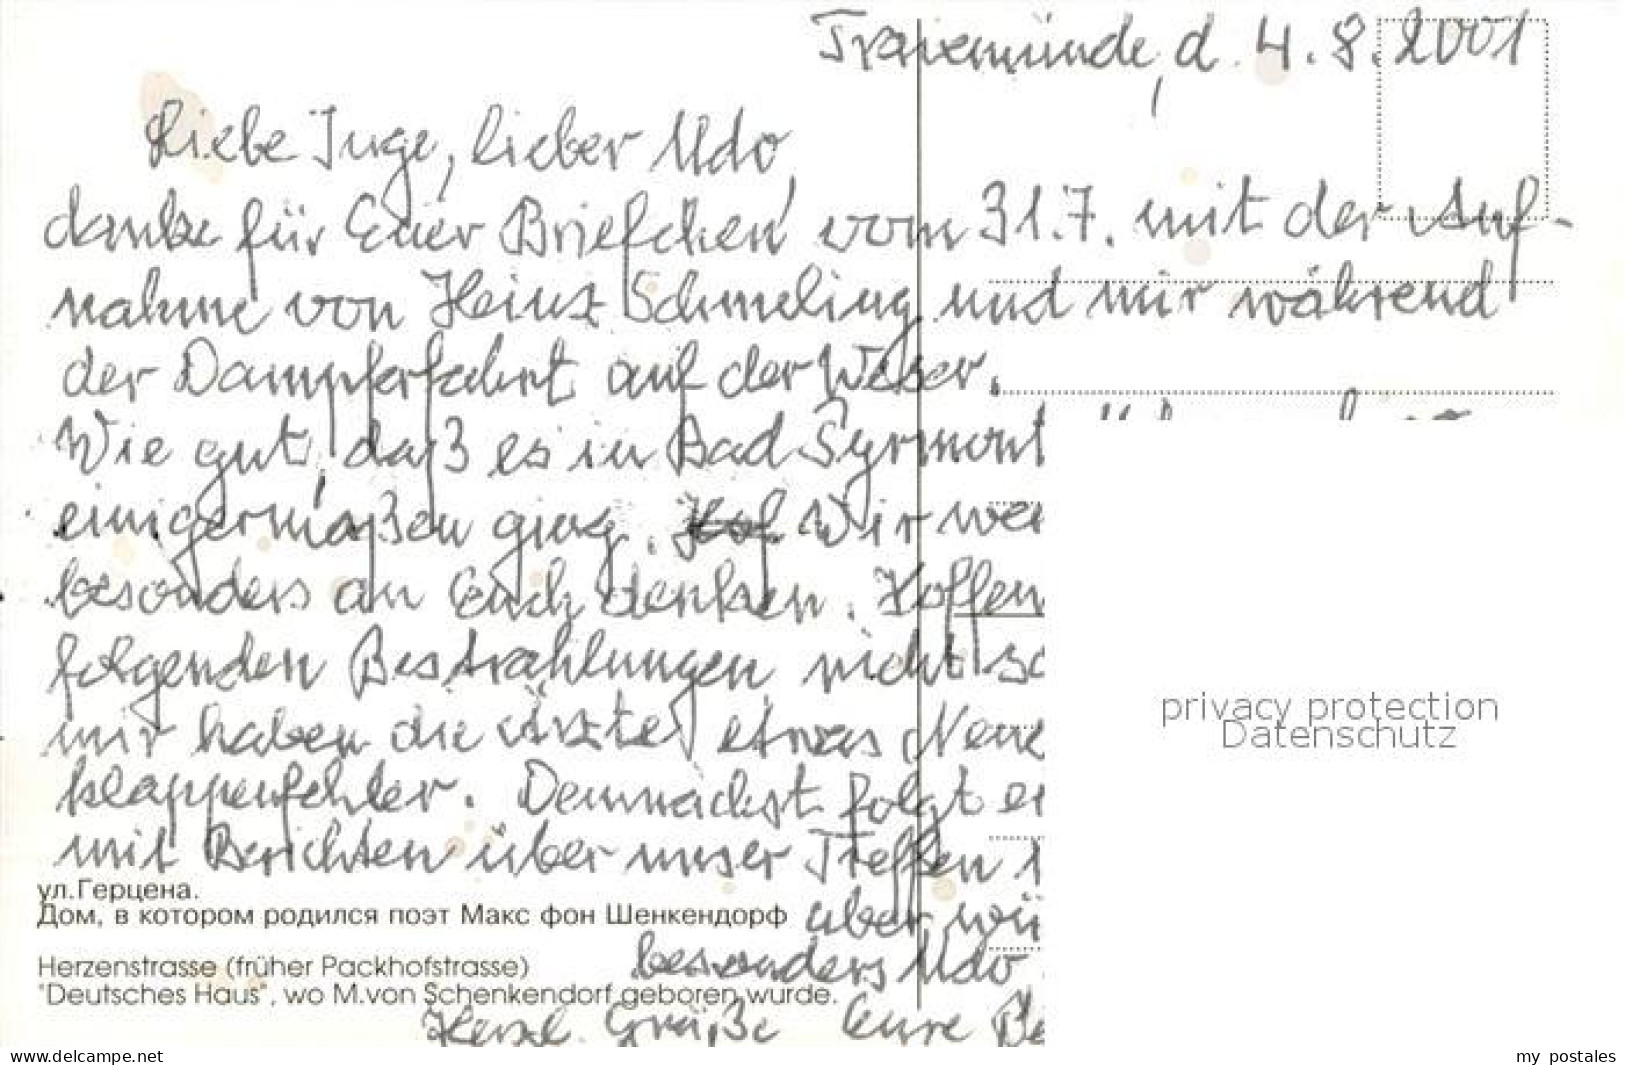 Travemünde, d. 4.8.2001
Liebe Inge, lieber Udo,
danke für Euer Briefchen vom 31.7. mit der Auf-
nahme von Heinz Schmeling und mir während
der Dampferfahrt auf der Weser.
Wie gut, daß es in Bad Pyrmont
einigermaßen ging. Wir
besonders an Euch denken. Hoffen
folgenden Bestrahlungen nicht
mir haben die Ärzte etwas
klappenfehler. Demnächst folgt
mit Berichten über unser Treffen
ул.Герцена.
Дом, в котором родился поэт Макс фон Шенкендорф
aber
besonders Udo
Herzenstrasse (früher Packhofstrasse)
"Deutsches Haus", wo M.von Schenkendorf geboren wurde.
Herzl. Grüße Eure
privacy protection
Datenschutz
www.delcampe.net
my postales